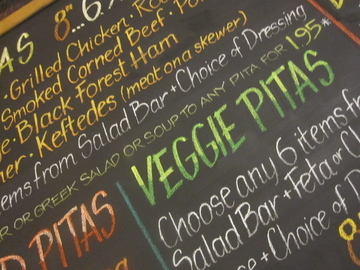 AS 8"...6
Grilled Chicken
Smoked Corned Beef
Black Forest Ham
Keftedes (meat on a skewer)
items from Salad Bar + Choice of Dressing
OR GREEK SALAD OR SOUP TO ANY PITA FOR 1.95*
VEGGIE PITAS
Choose any 6 items from
Salad Bar + Feta or
+ Choice of D
PITAS